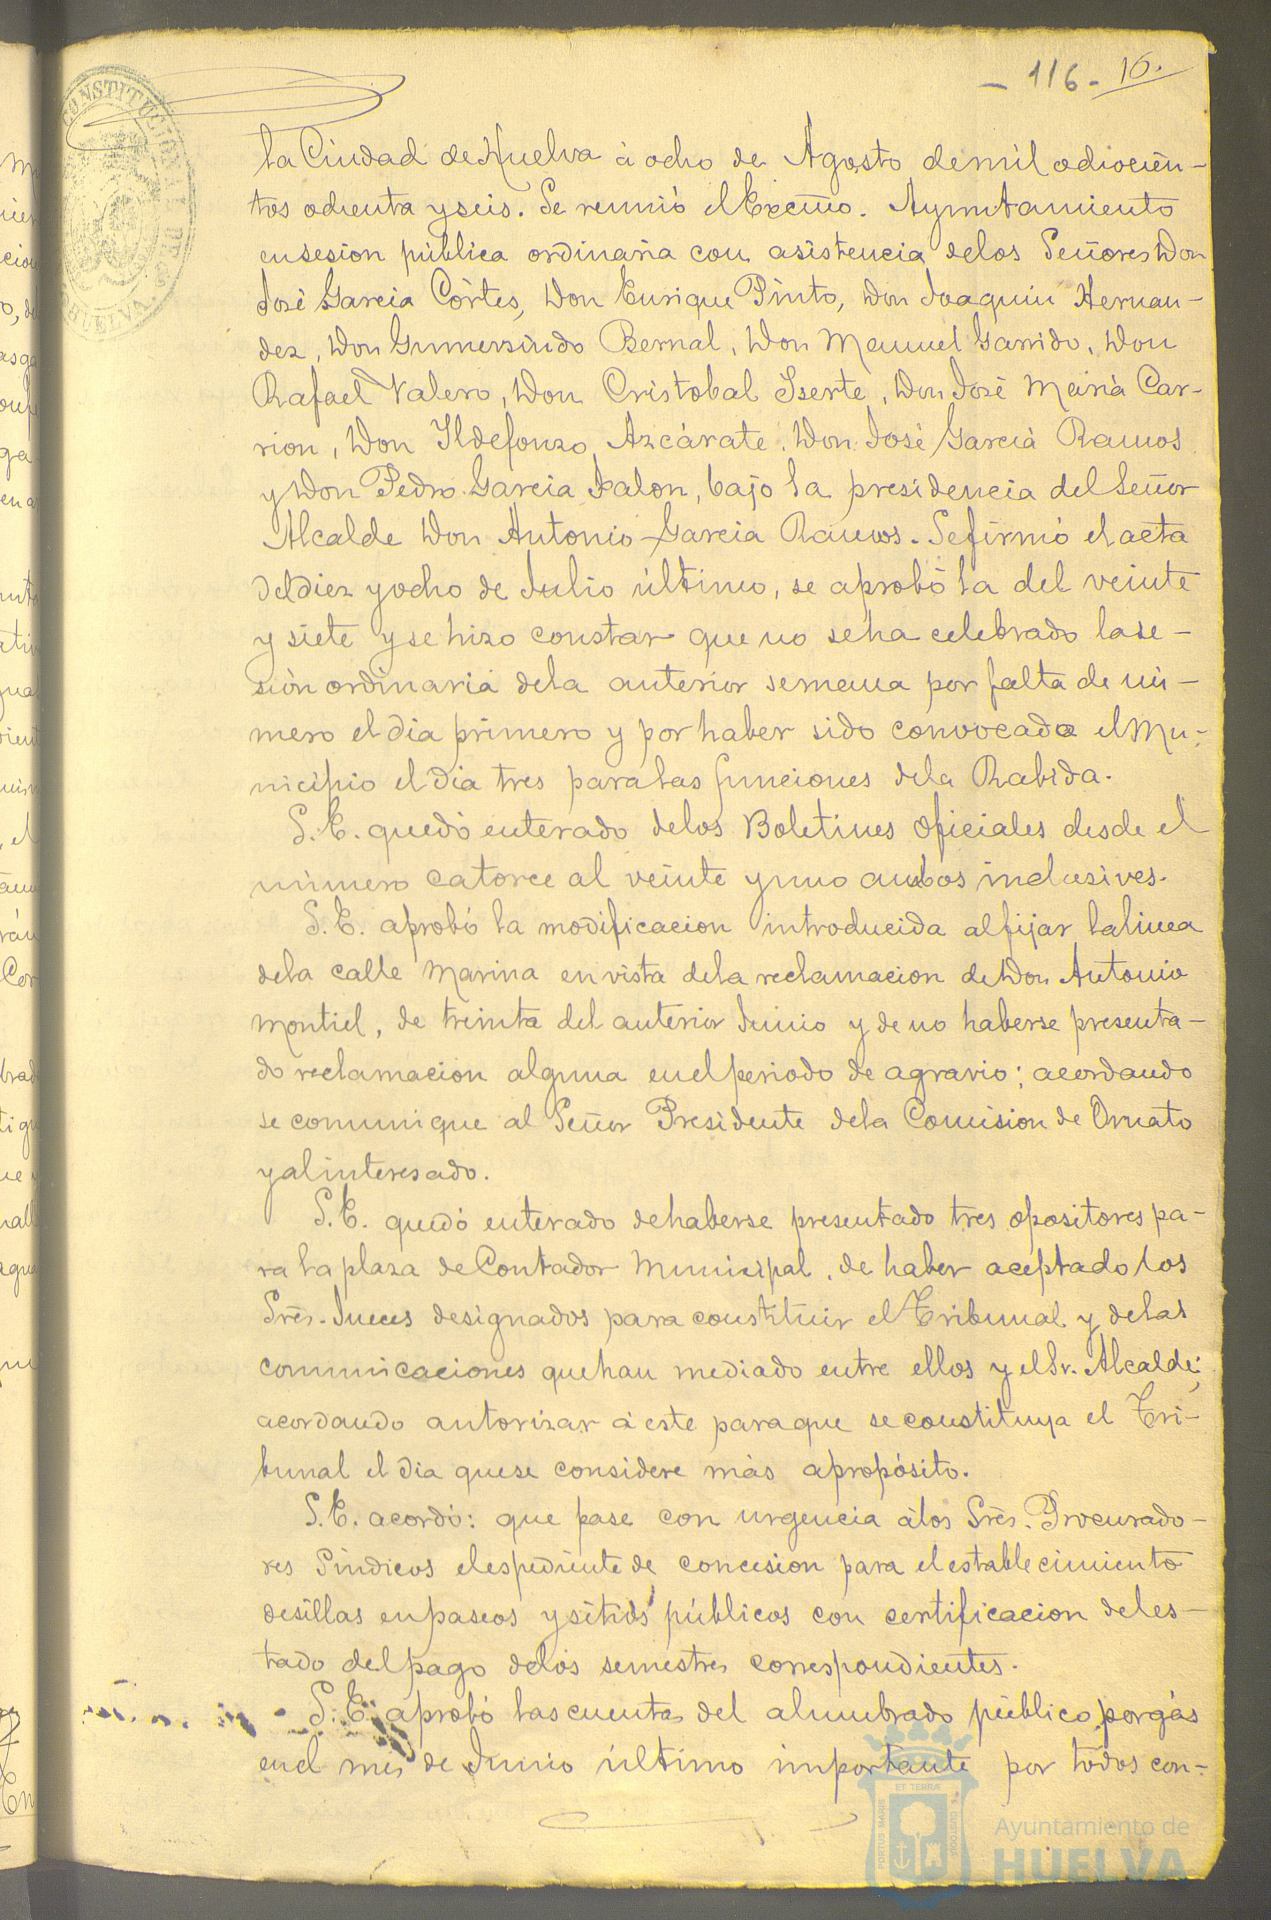 - 116 - 16.
CONSTITUCIONAL DE
HUELVA.
la Ciudad de Huelva à ocho de Agosto de mil ochocien-
tos ochenta y seis. Se reunió el Excmo. Ayuntamiento
en sesion pública ordinaria con asistencia de los Señores Don
José Garcia Córtes, Don Enrique Pinto, Don Joaquin Hernan-
dez, Don Gumersindo Bernal, Don Manuel Garrido, Don
Rafael Valero, Don Cristobal Iserte, Don José Maria Car-
rion, Don Ildefonzo Azcárate, Don José Garcia Ramos
y Don Pedro Garcia Jalon, bajo la presidencia del Señor
Alcalde Don Antonio Garcia Ramos. Se firmó el acta
del diez y ocho de Julio último, se aprobó la del veinte
y siete y se hizo constar que no se ha celebrado la se-
sión ordinaria de la anterior semana por falta de nú-
mero el dia primero y por haber sido convocado el Mu-
nicipio el dia tres para las funciones de la Rabida.
S. E. quedó enterado de los Boletines oficiales desde el
número catorce al veinte y uno ambos inclusives.
S. E. aprobó la modificacion introducida al fijar la linea
de la calle Marina en vista de la reclamacion de Don Antonio
Montiel, de treinta del anterior Junio y de no haberse presenta-
do reclamacion alguna en el periodo de agravio; acordando
se comunique al Señor Presidente de la Comision de Ornato
y al interesado.
S. E. quedó enterado de haberse presentado tres opositores pa-
ra la plaza de Contador Municipal, de haber aceptado los
Sres. Jueces designados para constituir el Tribunal y de las
comunicaciones que han mediado entre ellos y el Sr. Alcalde;
acordando autorizar á este para que se constituya el Tri-
bunal el dia que se considere más apropósito.
S. E. acordó: que pase con urgencia á los Sres. Procurado-
res Síndicos el espediente de concesion para el establecimiento
de sillas en paseos y sitios públicos con certificacion del es-
tado del pago de los semestres correspondientes.
S. E. aprobó las cuentas del alumbrado público por gás
en el mes de Junio último importante por todos con-
PORTUS MARIS ET TERRÆ CUSTODIA
Ayuntamiento de
HUELVA